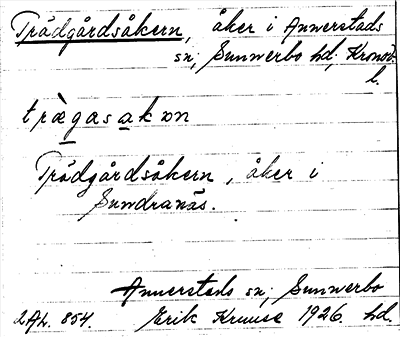 Trädgårdsåkern, åker i Annerstads
sn, Sunnerbo hd, Kronob.
l.
trägasakɔn
Trädgårdsåkern, åker i
Sundranäs.
Annerstads sn, Sunnerbo
2Ah. 854. Erik Kruuse 1926. hd.